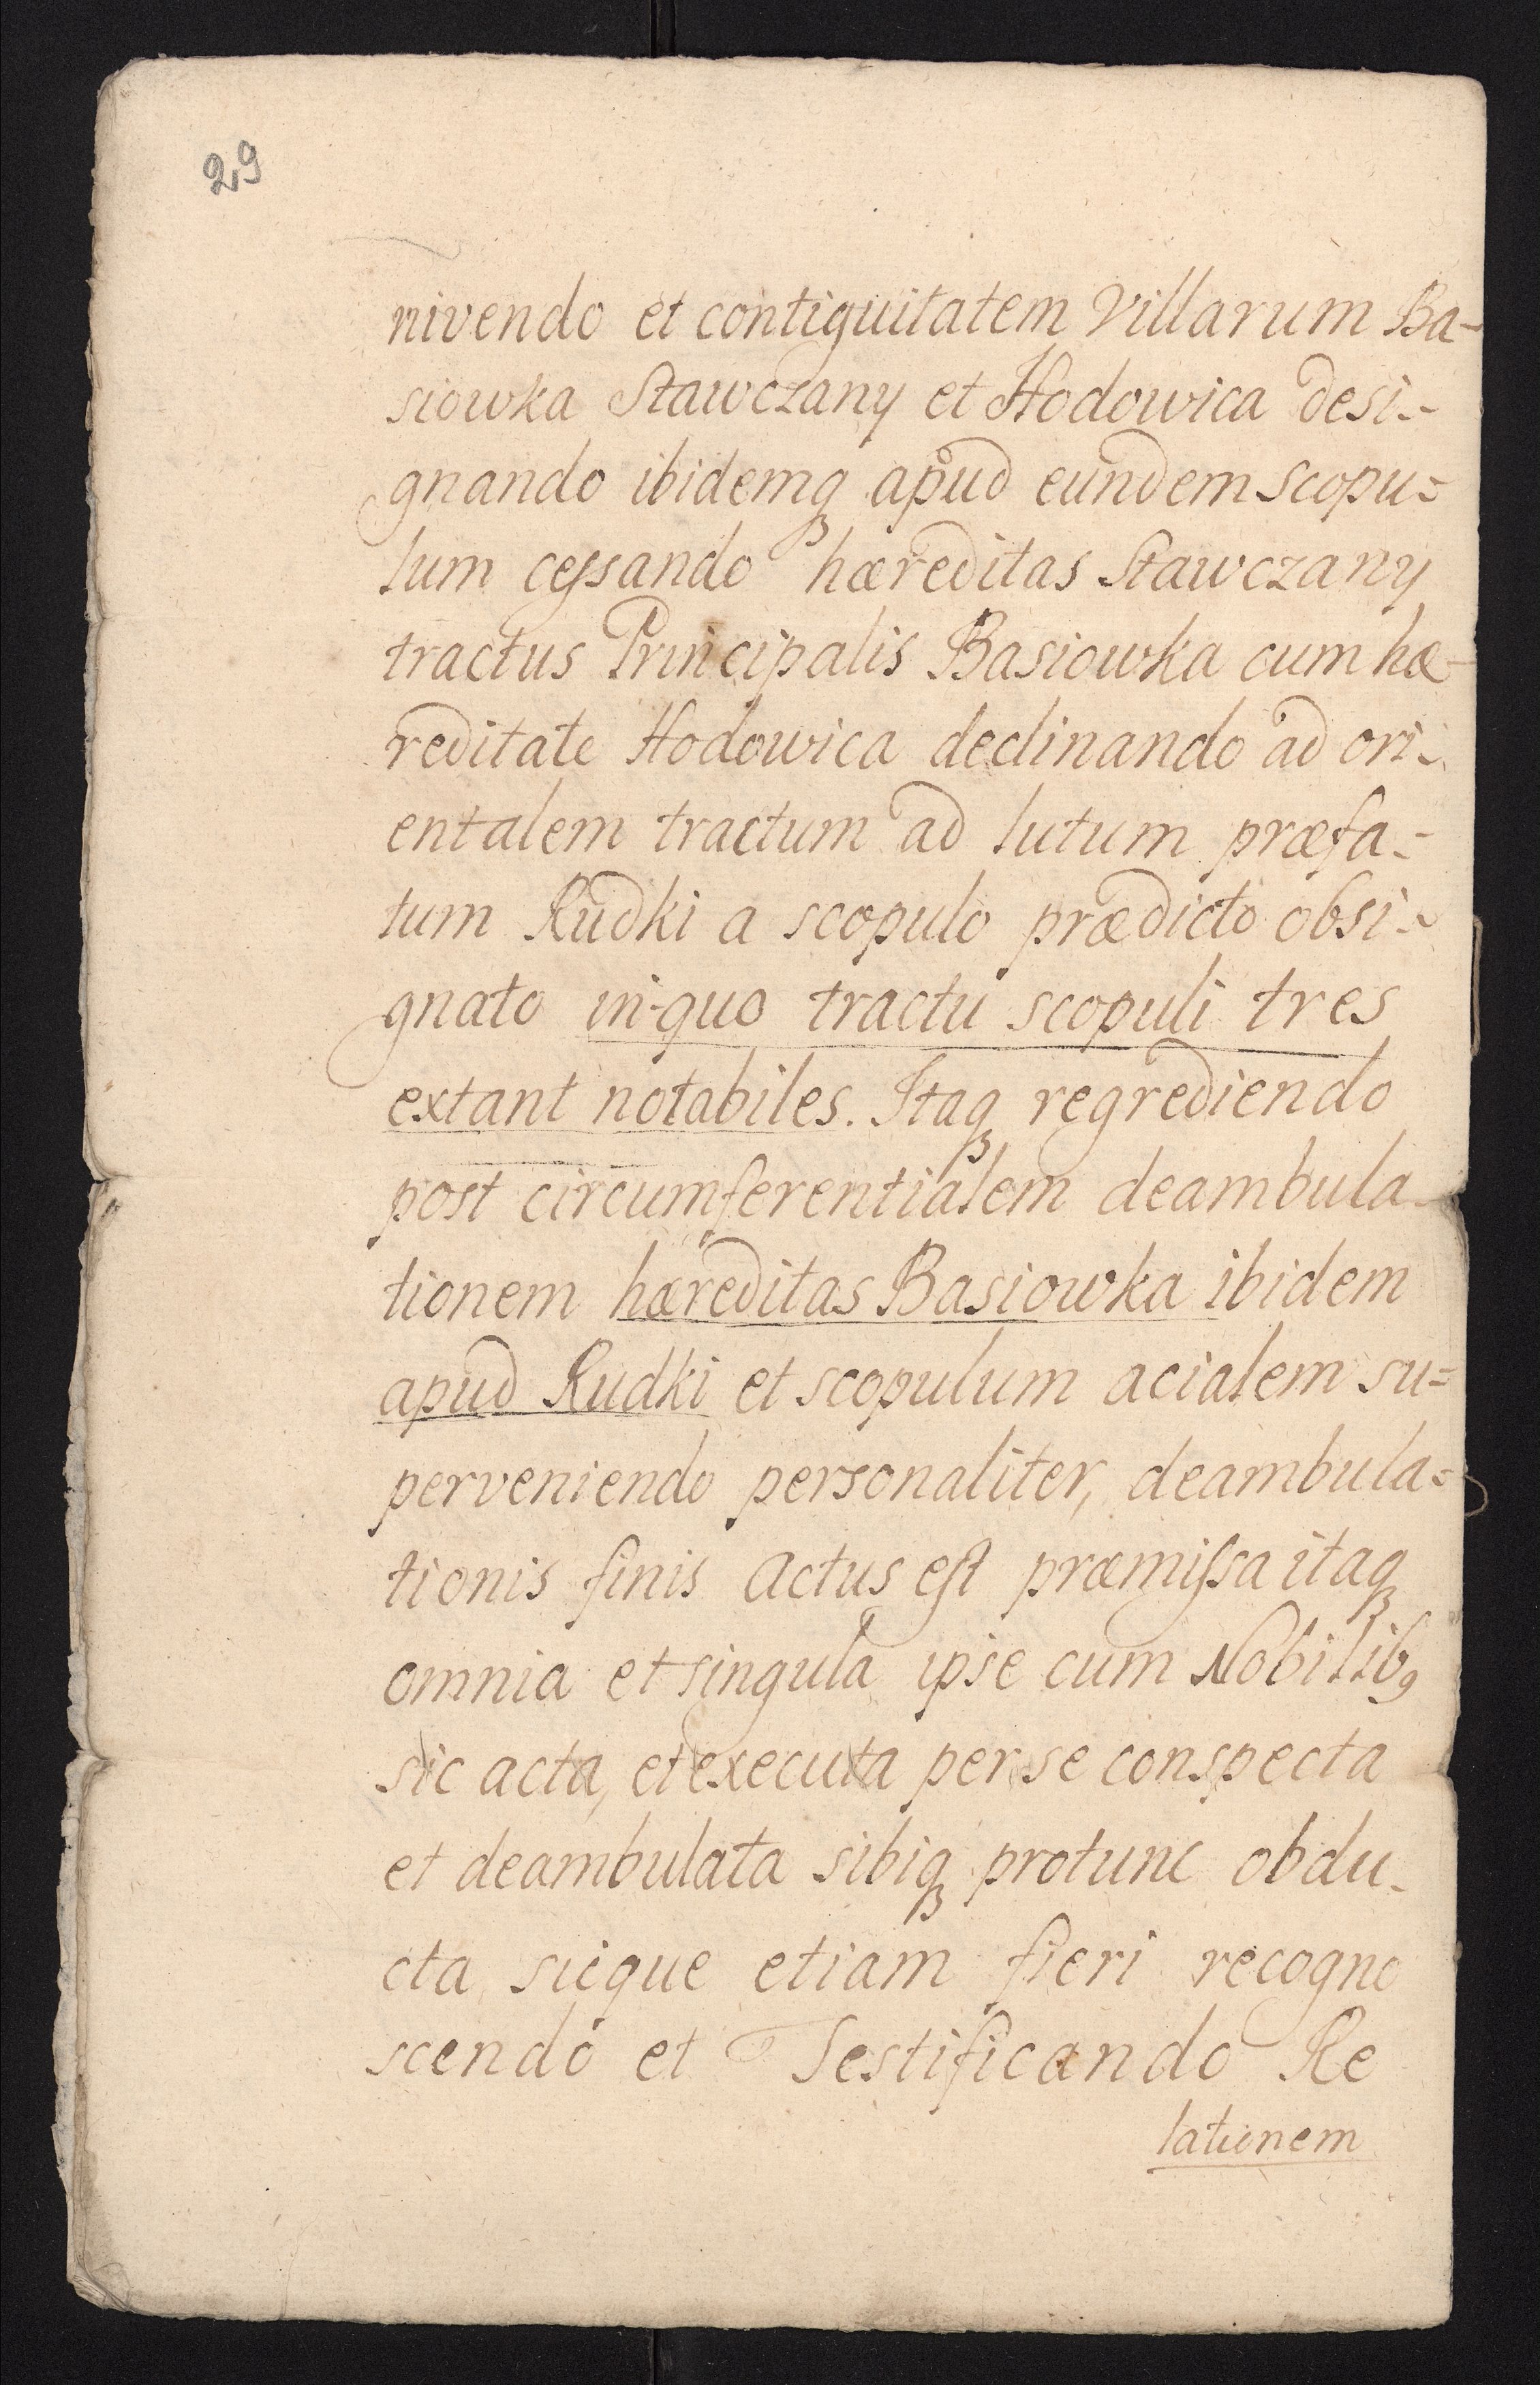 29
nivendo et contiguitatem Villarum Ba-
siowka Stawczany et Hodowica desi-
gnando ibidemqꝫ apud eundem scopu=
lum cessando hæreditas Stawczany
tractus Principalis Basiowka cum hæ-
reditate Hodowica declinando ad ori-
entalem tractum ad lutum præfa-
tum Rudki a scopulo prædicto obsi-
gnato in quo tractu scopuli tres
extant notabiles. Itaqꝫ regrediendo
post circumferentialem deambula-
tionem hæreditas Basiowka ibidem
apud Rudki et scopulum acialem su=
perveniendo personaliter, deambula=
tionis finis actus est præmissa itaqꝫ
omnia et singula ipse cum Nobilibꝰ
sic acta, et executa per se conspecta
et deambulata sibiqꝫ protunc obdu-
cta sicque etiam fieri recogno
scendo et Testificando Re
lationem